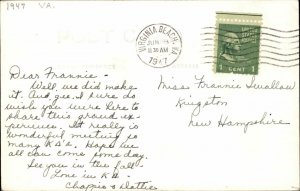 1947 VA.
VIRGINIA BEACH, VA.
JUN
11 30 AM
1947
1 CENT 1
Dear Frannie -
Well, we did make
it. And gee, I sure do
wish you were here to
share this grand ex-
perience. It really is
wonderful meeting so
many KΔ's. Hope we
all can come some day.
See you in the fall
Love in KΔ -
Chappie & Dottie
Miss Frannie Swallow
Kingston
New Hampshire